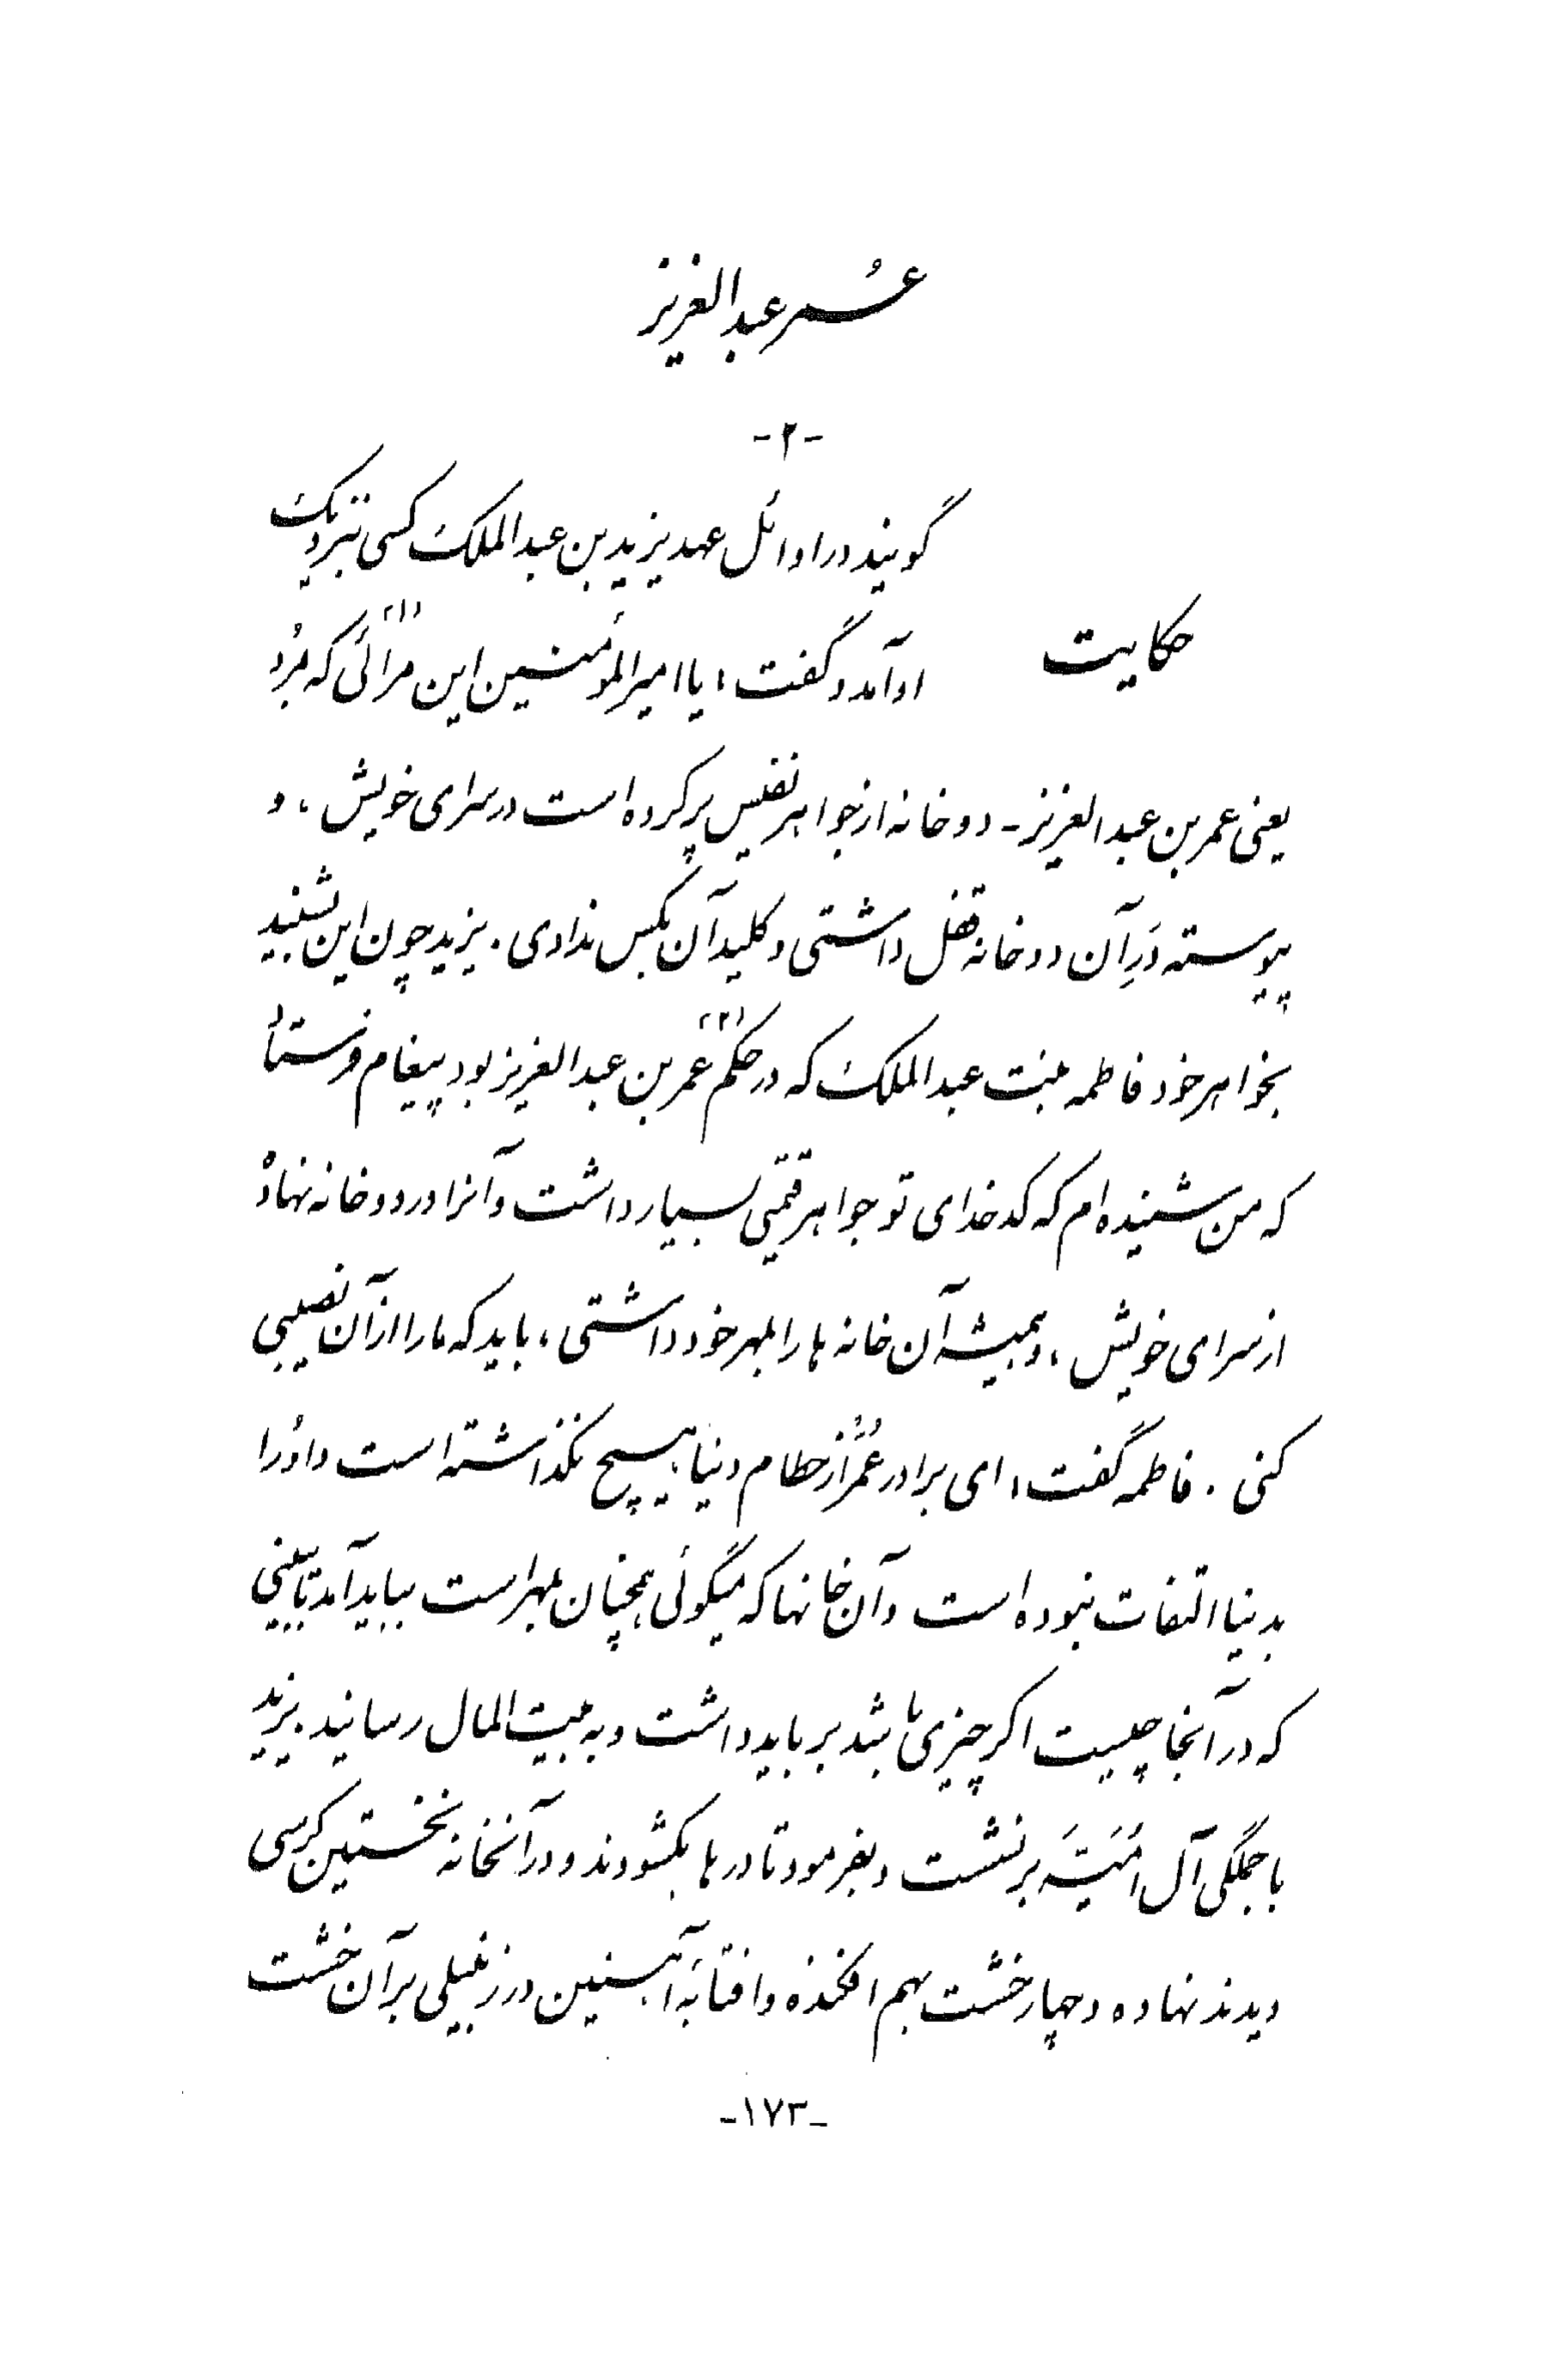 عُمر عبدالعزیز
-۲-
گویند در اوائل عهد یزید بن عبدالملک کسی نزدیک
حکایت
او آمد و گفت: یا امیرالمؤمنین این مرائی(۱) که بمُرد
یعنی عمر بن عبدالعزیز - دو خانه از جواهر نفیس پر کرده است در سرای خویش، و
پیوسته دَرِ آن دو خانه قفل داشتی و کلید آن بکس ندادی. یزید چون این بشنید
بخواهر خود فاطمه بنت عبدالملک که در حکم(۲) عمر بن عبدالعزیز بود پیغام فرستاد
که من شنیده‌ام که کدخدای تو جواهر قیمتی بسیار داشت و آنرا در دو خانه نهاده
از سرای خویش، و همیشه آن خانه‌ها را بمهر خود داشتی، باید که ما را از آن نصیبی
کنی. فاطمه گفت: ای برادر عُمَر از حطام دنیا هیچ نگذاشته است و او را
بدنیا التفات نبوده است و آن خانها که میگوئی همچنان بمهر است بباید آمد تا ببینی
که در آنجا چیست اگر چیزی باشد بر باید داشت و به بیت‌المال رسانید. یزید
با جملگی آل اُمَیَّه بر نشست و بفرمود تا درها بگشودند و در آنخانه نخستین کرسی
دیدند نهاده و چهار خشت بهم افکنده و افتابهٔ آهنین در زنبیلی بر آن خشت
-۱۷۳-